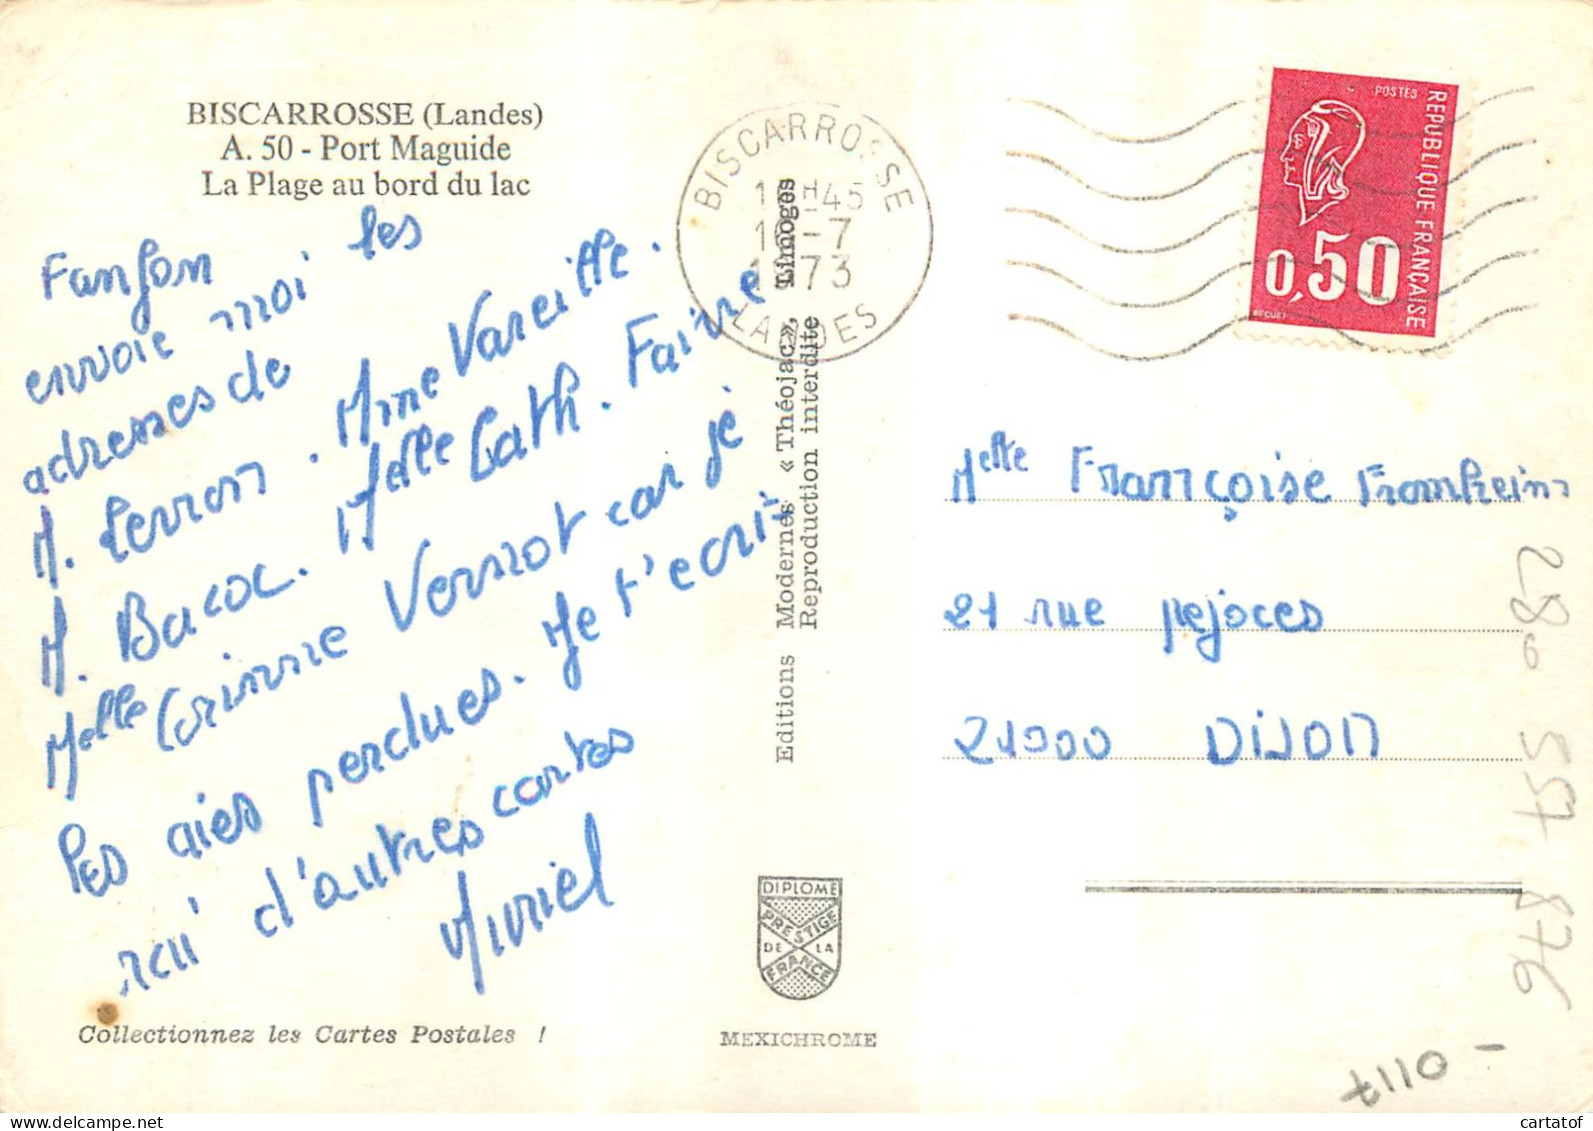 BISCARROSSE (Landes)
A. 50 - Port Maguide
La Plage au bord du lac
Fanfon
envoie moi les
adresses de
M. Perron. Mme Vareille.
M. Bacoc. Melle Cath. Faivre
Melle Corinne Vernot car je
les aies perdues. Je t'ecris
rai d'autres cartes
Muriel
Collectionnez les Cartes Postales !
Editions Modernes « Théojac», Limoges
Reproduction interdite
DIPLOME
PRESTIGE
DE LA
FRANCE
MEXICHROME
BISCARROSSE
H 45
-7
1973
LANDES
POSTES
REPUBLIQUE FRANÇAISE
0,50
BEQUET
Melle Françoise Fromheim
21 rue pejoces
21000 DIJON
557 876
0117
cartatof